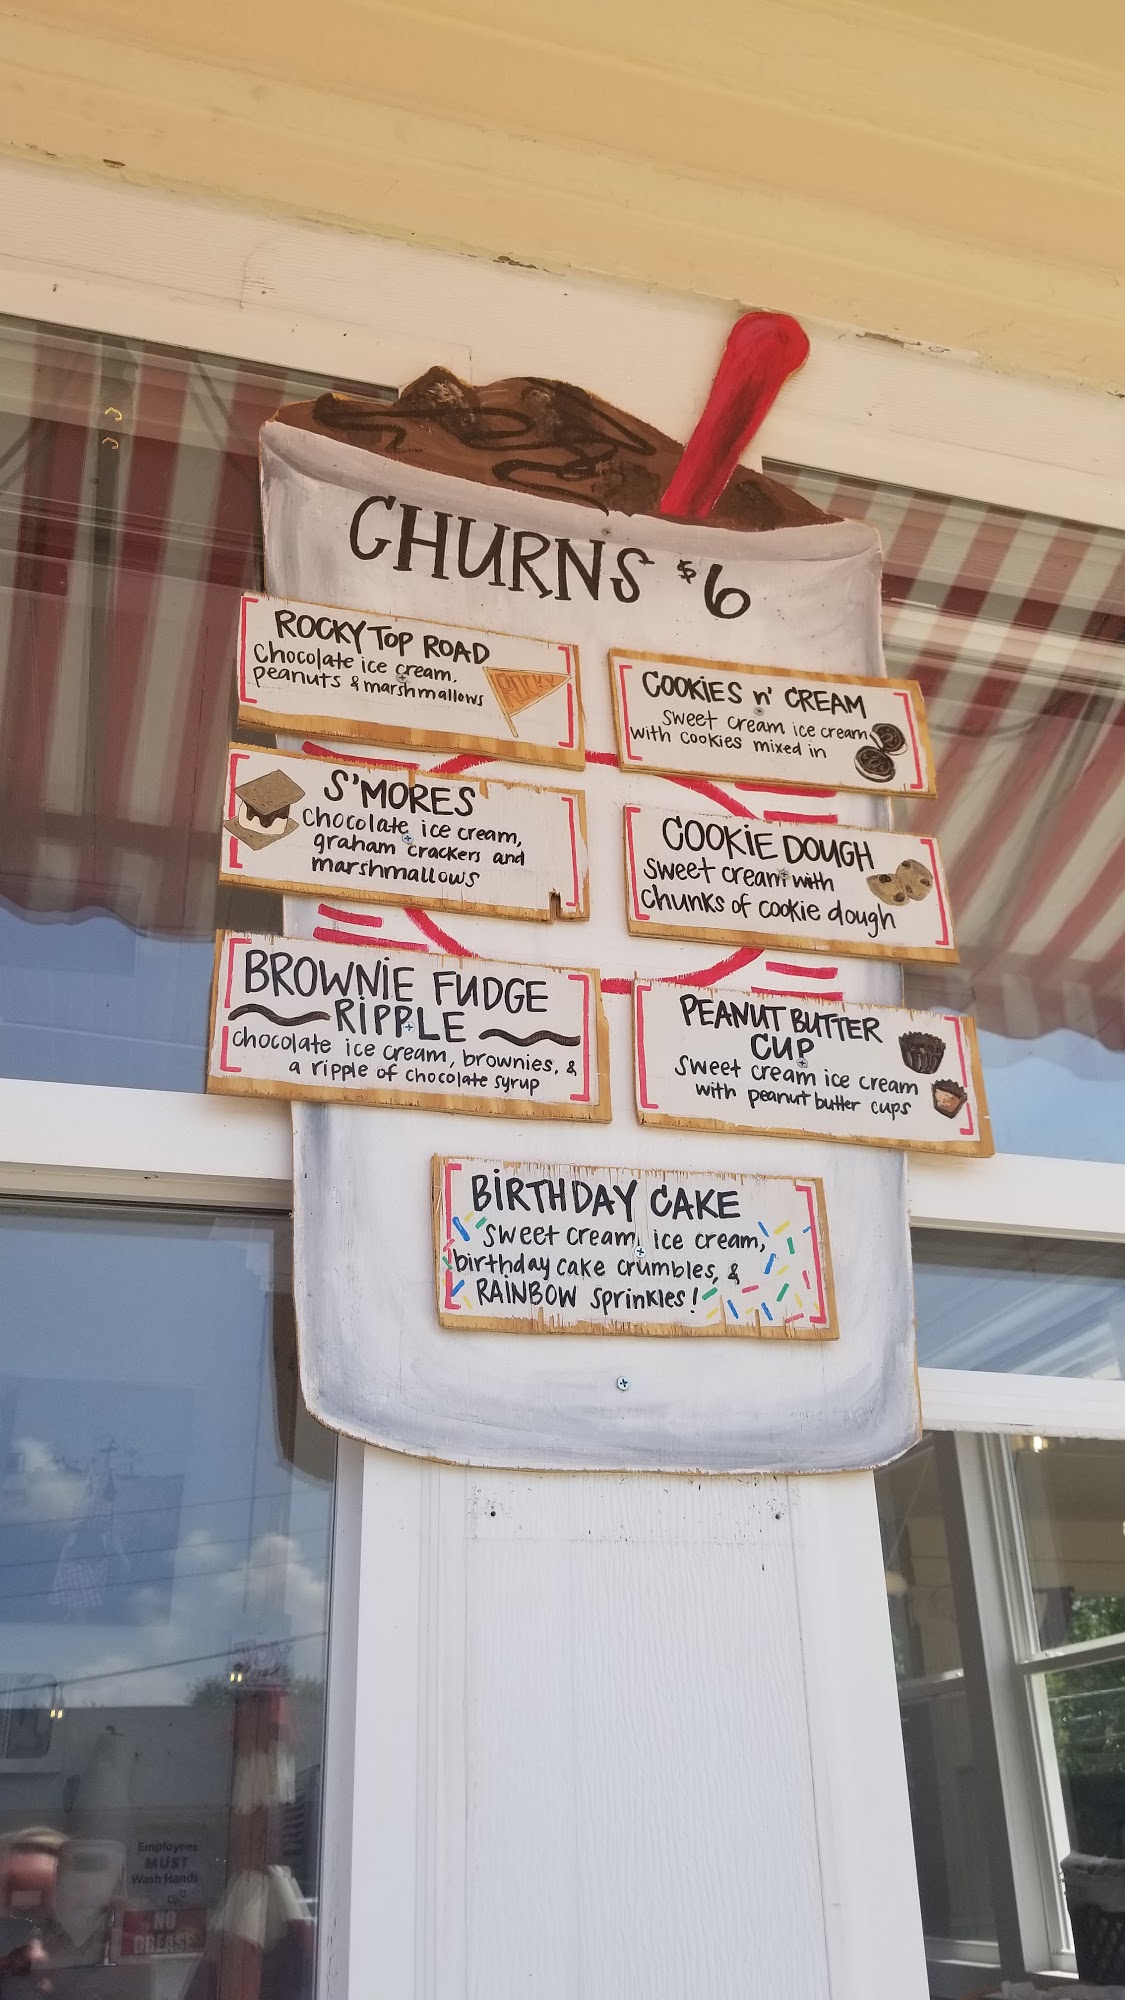 CHURNS $6
ROCKY TOP ROAD
Chocolate ice cream,
peanuts & marshmallows
ROCKY
S'MORES
Chocolate ice cream,
graham crackers and
marshmallows
BROWNiE FUDGE
RiPPLE
chocolate ice cream, brownies, &
a ripple of chocolate syrup
COOKiES n' CREAM
sweet cream ice cream
with cookies mixed in
COOKiE DOUGH
sweet cream with
chunks of cookie dough
PEANUT BUTTER
CUP
sweet cream ice cream
with peanut butter cups
BiRTHDAY CAKE
sweet cream, ice cream,
birthday cake crumbles, &
RAiNBOW sprinkles!
Employees
MUST
Wash Hands
NO
GREASE